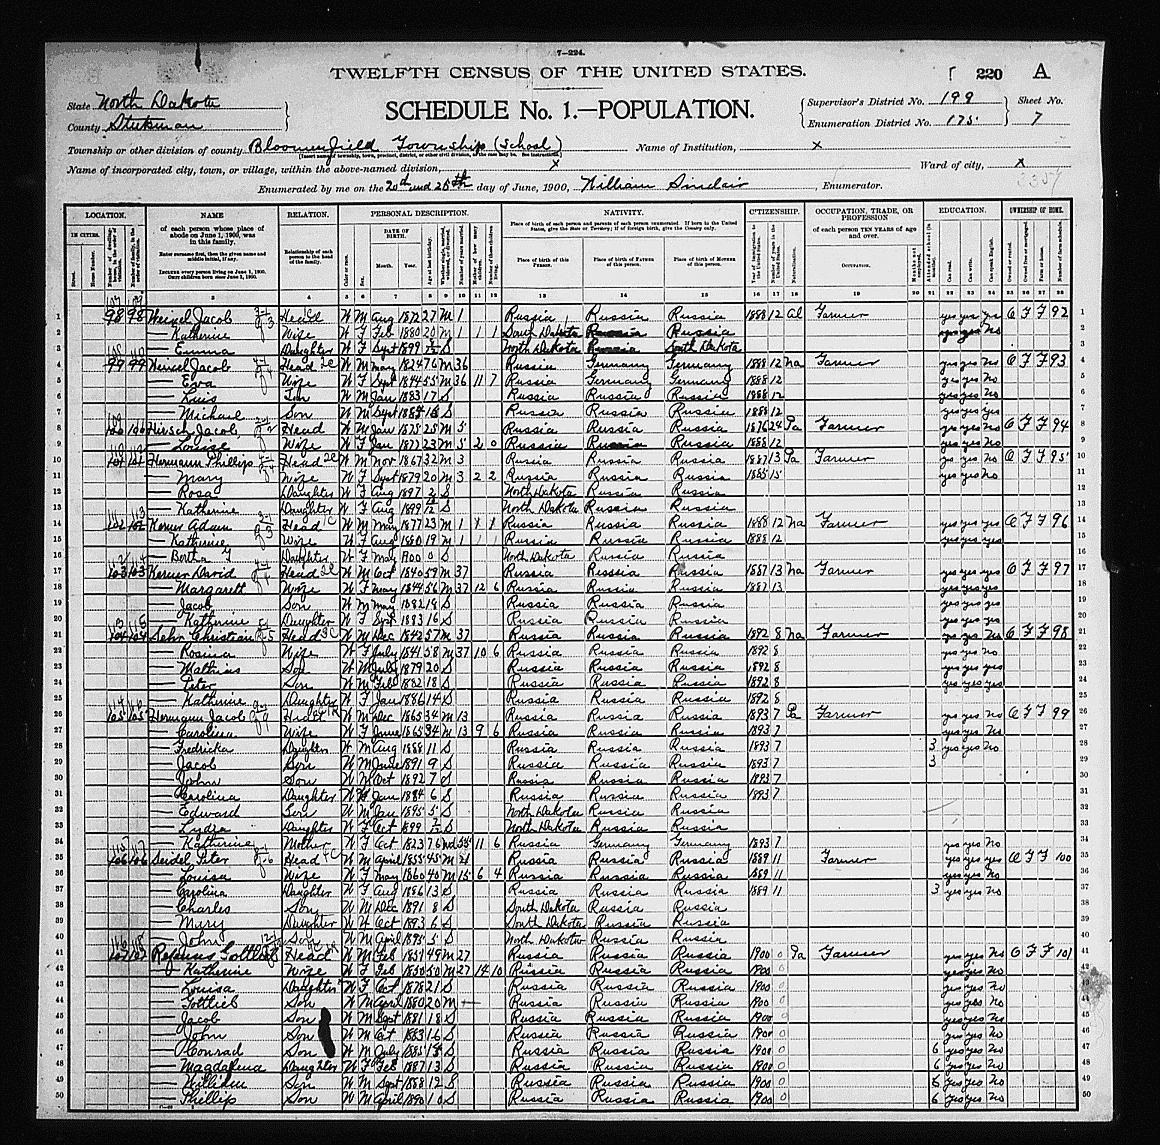 7-224.
TWELFTH CENSUS OF THE UNITED STATES.
220 A
State North Dakota
SCHEDULE No. 1.—POPULATION.
Supervisor's District No. 199 Sheet No.
County Stutsman
Enumeration District No. 175 7
Township or other division of county Bloomenfield Township (School) Name of Institution, X
Name of incorporated city, town, or village, within the above-named division, X Ward of city, X
Enumerated by me on the 20th and 25th day of June, 1900, William Sinclair, Enumerator.
LOCATION. NAME RELATION. PERSONAL DESCRIPTION. NATIVITY. CITIZENSHIP. OCCUPATION, TRADE, OR PROFESSION EDUCATION. OWNERSHIP OF HOME.
IN CITIES. of each person whose place of abode on June 1, 1900, was in this family. Relationship of each person to the head of the family. DATE OF BIRTH. Place of birth of each person and parents of each person enumerated. of each person TEN YEARS of age and over.
Month. Year. Place of birth of this PERSON. Place of birth of FATHER of this person. Place of birth of MOTHER of this person. OCCUPATION.
1 98 98 Weisel Jacob Head W M Aug 1872 27 M 1 Russia Russia Russia 1888 12 Al Farmer yes yes yes O F F 92
2 — Katherine Wife W F Feb 1880 20 M 1 1 1 South Dakota Russia Russia yes yes No
3 — Emma Daughter W F Sept 1899 S North Dakota Russia South Dakota
4 99 99 Weisel Jacob Head W M May 1824 76 M 36 Russia Germany Germany 1888 12 Na Farmer yes yes No O F F 93
5 — Eva Wife W F Sept 1844 55 M 36 11 7 Russia Germany Germany 1888 12 yes yes no
6 — Luis Son W M Jan 1883 17 S Russia Russia Russia 1888 12 yes yes No
7 — Michael Son W M Sept S Russia Russia Russia 1888 12 yes yes yes
8 100 100 Hirsch Jacob Head W M Jan 1875 25 M 5 Russia Russia Russia 1876 24 Pa Farmer yes yes yes O F F 94
9 — Louise Wife W F Jan 1877 23 M 5 2 0 Russia Russia Russia 1888 12 yes yes No
10 101 101 Hermann Phillip Head W M Nov 1867 32 M 3 Russia Russia Russia 1887 13 Pa Farmer yes yes No O F F 95
11 — Mary Wife W F Sept 1879 20 M 3 2 2 Russia Russia Russia 1885 15 yes yes No
12 — Rosa Daughter W F Aug 1897 2 S North Dakota Russia Russia
13 — Katherine Daughter W F Aug 1899 S North Dakota Russia Russia
14 102 102 Kerner Adam Head W M May 1877 23 M 1 Russia Russia Russia 1888 12 Na Farmer yes yes yes O F F 96
15 — Katherine Wife W F Aug 1880 19 M 1 1 1 Russia Russia Russia 1888 12 yes yes no
16 — Bertha F Daughter W F May 1900 0 S North Dakota Russia Russia
17 103 103 Kerner David Head W M Oct 1840 59 M 37 Russia Russia Russia 1887 13 Na Farmer yes yes yes O F F 97
18 — Margarett Wife W F May 1844 56 M 37 12 6 Russia Russia Russia 1887 13 yes yes yes
19 — Jacob Son W M May 1882 18 S Russia Russia Russia yes yes yes
20 — Katherine Daughter W F Sept 1883 16 S Russia Russia Russia yes yes yes
21 104 104 Sahr Christian Head W M Dec 1842 57 M 37 Russia Russia Russia 1892 8 Na Farmer yes yes No O F F 98
22 — Rosina Wife W F July 1841 58 M 37 10 6 Russia Russia Russia 1892 8 yes yes no
23 — Mathias Son W M July 1879 20 S Russia Russia Russia 1892 8 yes yes yes
24 — Peter Son W M Feb 1882 18 S Russia Russia Russia 1892 8 yes yes yes
25 — Katherine Daughter W F Jan 1886 14 S Russia Russia Russia 1892 8
26 105 105 Hermann Jacob Head W M Dec 1865 34 M 13 Russia Russia Russia 1893 7 Pa Farmer yes yes no O F F 99
27 — Carolina Wife W F June 1865 34 M 13 9 6 Russia Russia Russia 1893 7 yes yes No
28 — Fredricka Daughter W M Aug 1888 11 S Russia Russia Russia 1893 7 3 yes yes No
29 — Jacob Son W M June 1891 9 S Russia Russia Russia 1893 7 3
30 — John Son W M Oct 1892 7 S Russia Russia Russia 1893 7
31 — Carolina Daughter W Jan 1894 6 S Russia Russia Russia 1893 7
32 — Edward Son W M Jan 1895 5 S North Dakota Russia Russia
33 — Lydia Daughter W F Oct 1899 S North Dakota Russia Russia
34 — Katherine Mother W F Oct 1823 76 Wd 11 6 Russia Germany Germany 1893 7 yes yes No
35 106 106 Seidel Peter Head W M April 1855 45 M 21 Russia Russia Russia 1889 11 Farmer yes yes yes O F F 100
36 — Louisa Wife W F May 1860 40 M 15 6 4 Russia Russia Russia 1889 11 yes yes No
37 — Carolina Daughter W F Aug 1886 13 S Russia Russia Russia 1889 11 3 yes yes No
38 — Charles Son W M Dec 1891 8 S South Dakota Russia Russia
39 — Mary Daughter W Oct 1893 6 S South Dakota Russia Russia
40 — John Son W M April 1895 5 S North Dakota Russia Russia
41 107 107 Gottlieb Head W M Feb 1851 49 M 27 Russia Russia Russia 1900 0 Pa Farmer yes yes No O F F 101
42 — Katherine Wife W F Feb 1850 50 M 27 14 10 Russia Russia Russia 1900 0 yes yes No
43 — Louisa Daughter W F Oct 1878 21 S Russia Russia Russia 1900 0 yes yes No
44 — Gottlieb Son W M April 1880 20 M Russia Russia Russia 1900 0 yes yes No
45 — Jacob Son W M Sept 1881 18 S Russia Russia Russia 1900 0 yes yes No
46 — John Son W M Oct 1883 16 S Russia Russia Russia 1900 0 yes yes No
47 — Conrad Son W M July 1885 S Russia Russia Russia 1900 0 6 yes yes No
48 — Magdalena Daughter W F Feb 1887 13 S Russia Russia Russia 1900 0 6 yes yes No
49 — William Son W M Sept 1888 12 S Russia Russia Russia 1900 0 6 yes yes No
50 — Phillip Son W M April 1890 10 S Russia Russia Russia 1900 0 6 yes yes No